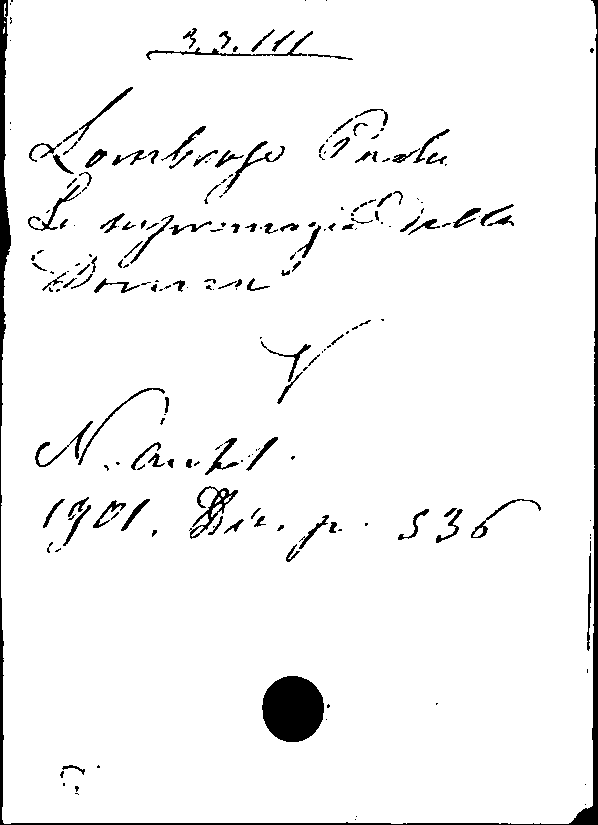 3.3.111
Lombroso Paola
La supremazia della
Donna
V
N. Antol.
1901. Dic. p. 536